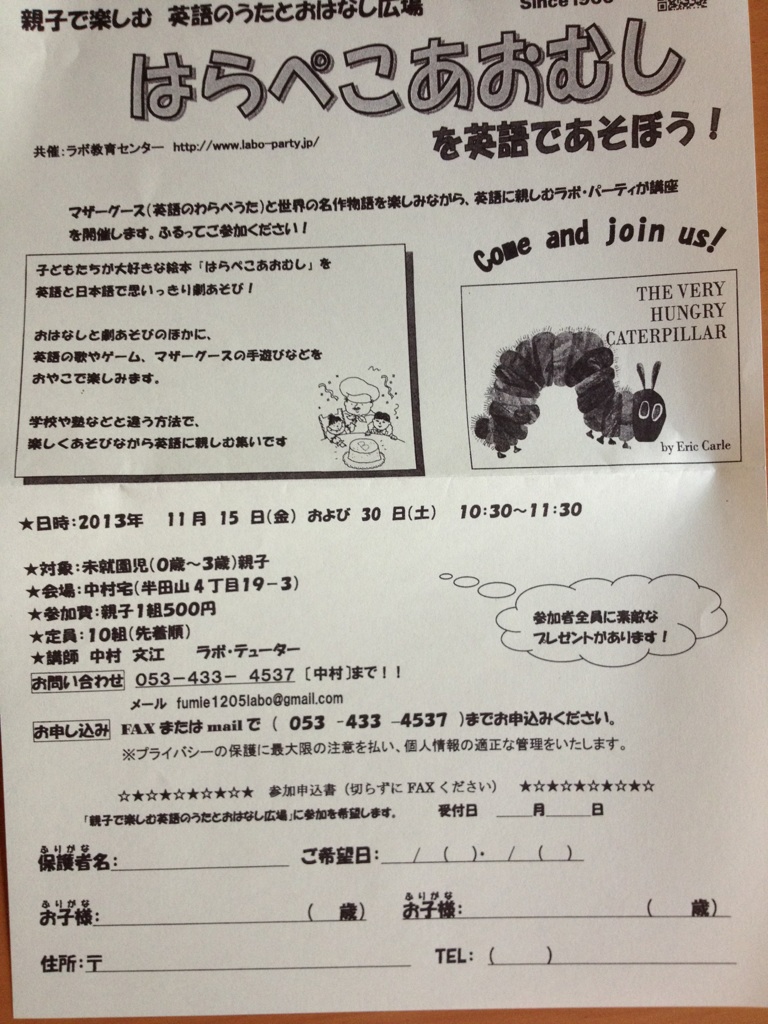 親子で楽しむ 英語のうたとおはなし広場
はらぺこあおむし
を英語であそぼう！
共催：ラボ教育センター http://www.labo-party.jp/
マザーグース（英語のわらべうた）と世界の名作物語を楽しみながら、英語に親しむラボ・パーティが講座
を開催します。ふるってご参加ください！
Come and join us!
子どもたちが大好きな絵本「はらぺこあおむし」を
英語と日本語で思いっきり劇あそび！
おはなしと劇あそびのほかに、
英語の歌やゲーム、マザーグースの手遊びなどを
おやこで楽しみます。
学校や塾などと違う方法で、
楽しくあそびながら英語に親しむ集いです
THE VERY
HUNGRY
CATERPILLAR
by Eric Carle
★日時：2013年 11月 15 日(金) および 30 日(土) 10:30～11:30
★対象：未就園児（0歳～3歳）親子
★会場：中村宅（半田山４丁目19－3）
★参加費：親子１組500円
★定員：10組（先着順）
★講師 中村 文江 ラボ・テューター
参加者全員に素敵な
プレゼントがあります！
お問い合わせ 053－433－ 4537 〔中村〕まで！！
メール fumie1205labo@gmail.com
お申し込み FAX または mail で （ 053 －433 －4537 ）までお申込みください。
※プライバシーの保護に最大限の注意を払い、個人情報の適正な管理をいたします。
☆★☆★☆★☆★☆★ 参加申込書（切らずに FAX ください） ★☆★☆★☆★☆★☆
「親子で楽しむ英語のうたとおはなし広場」に参加を希望します。 受付日 ＿＿月＿＿日
ふりがな
保護者名： ご希望日： / ( )・ / ( )
ふりがな ふりがな
お子様： ( 歳) お子様： ( 歳)
住所：〒 TEL： ( )